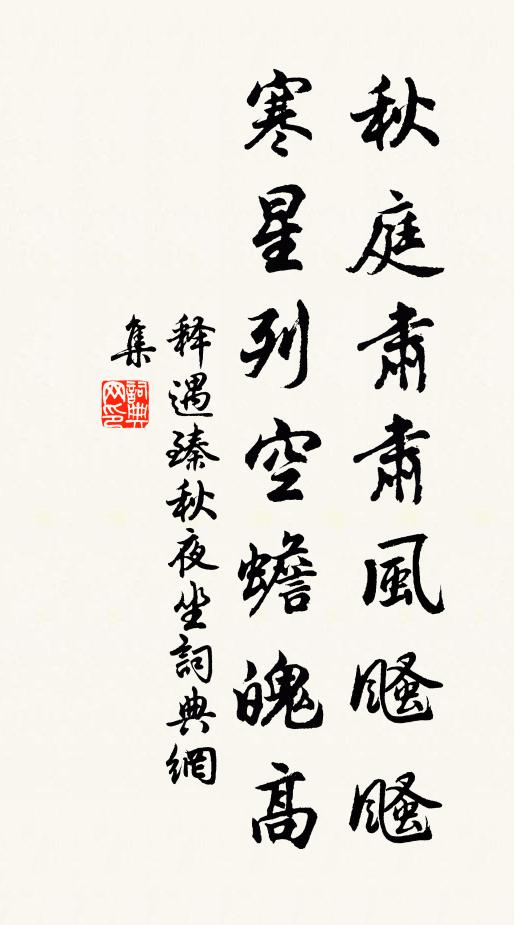 秋庭肅肅風颾颾
寒星列空蟾魄高
释遇臻秋夜坐詞典網
集
詞典网印